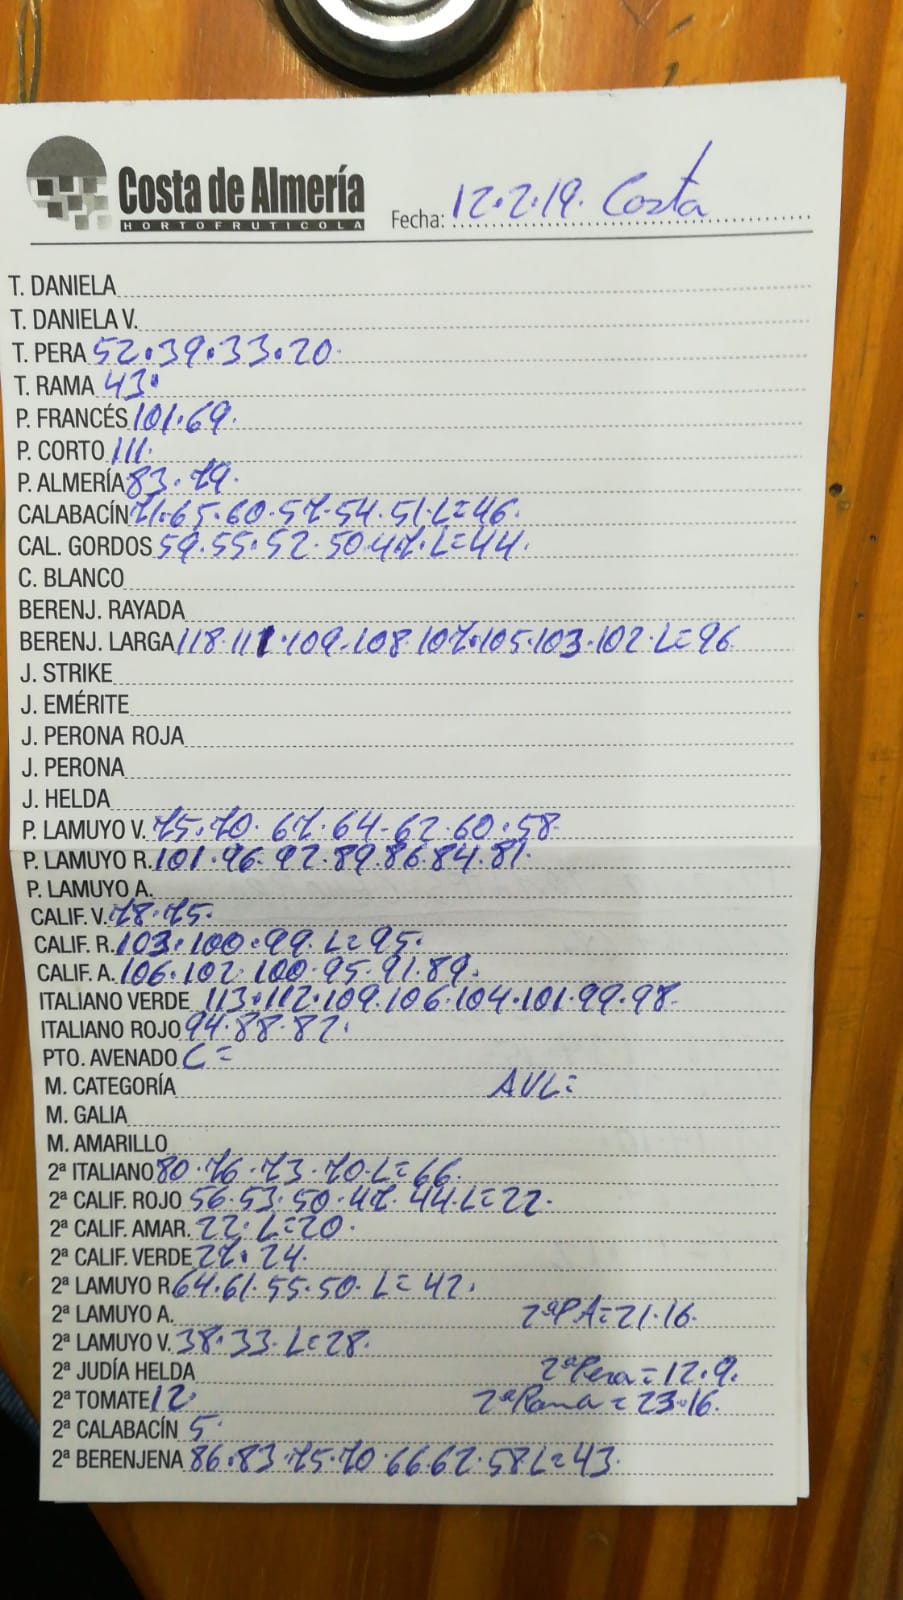 Costa de Almería
HORTOFRUTICOLA
Fecha: 12.2.19. Costa
T. DANIELA
T. DANIELA V.
T. PERA 52.39.33.20.
T. RAMA 43.
P. FRANCÉS 101.69.
P. CORTO 111.
P. ALMERÍA 83.79.
CALABACÍN 71.65.60.57.54.51.L=46.
CAL. GORDOS 59.55.52.50.47.L=44.
C. BLANCO
BERENJ. RAYADA
BERENJ. LARGA 118.111.109.108.107.105.103.102.L=96
J. STRIKE
J. EMÉRITE
J. PERONA ROJA
J. PERONA
J. HELDA
P. LAMUYO V. 75.70.67.64.62.60.58
P. LAMUYO R. 101.96.92.89.86.84.81.
P. LAMUYO A.
CALIF. V. 78.75.
CALIF. R. 103.100.99.L=95.
CALIF. A. 106.102.100.95.91.89.
ITALIANO VERDE 113.112.109.106.104.101.99.98.
ITALIANO ROJO 94.88.82.
PTO. AVENADO C=
M. CATEGORÍA AVL=
M. GALIA
M. AMARILLO
2ª ITALIANO 80.76.73.70.L=66.
2ª CALIF. ROJO 56.53.50.47.44.L=22.
2ª CALIF. AMAR. 22.L=20.
2ª CALIF. VERDE 27.24.
2ª LAMUYO R 64.61.55.50.L=42.
2ª LAMUYO A. 2ªPA=21.16.
2ª LAMUYO V. 38.33.L=28.
2ª JUDÍA HELDA 2ªPera=12.9.
2ª TOMATE 12 2ªRama=23.16.
2ª CALABACÍN 5.
2ª BERENJENA 86.83.75.70.66.62.58.L=43.